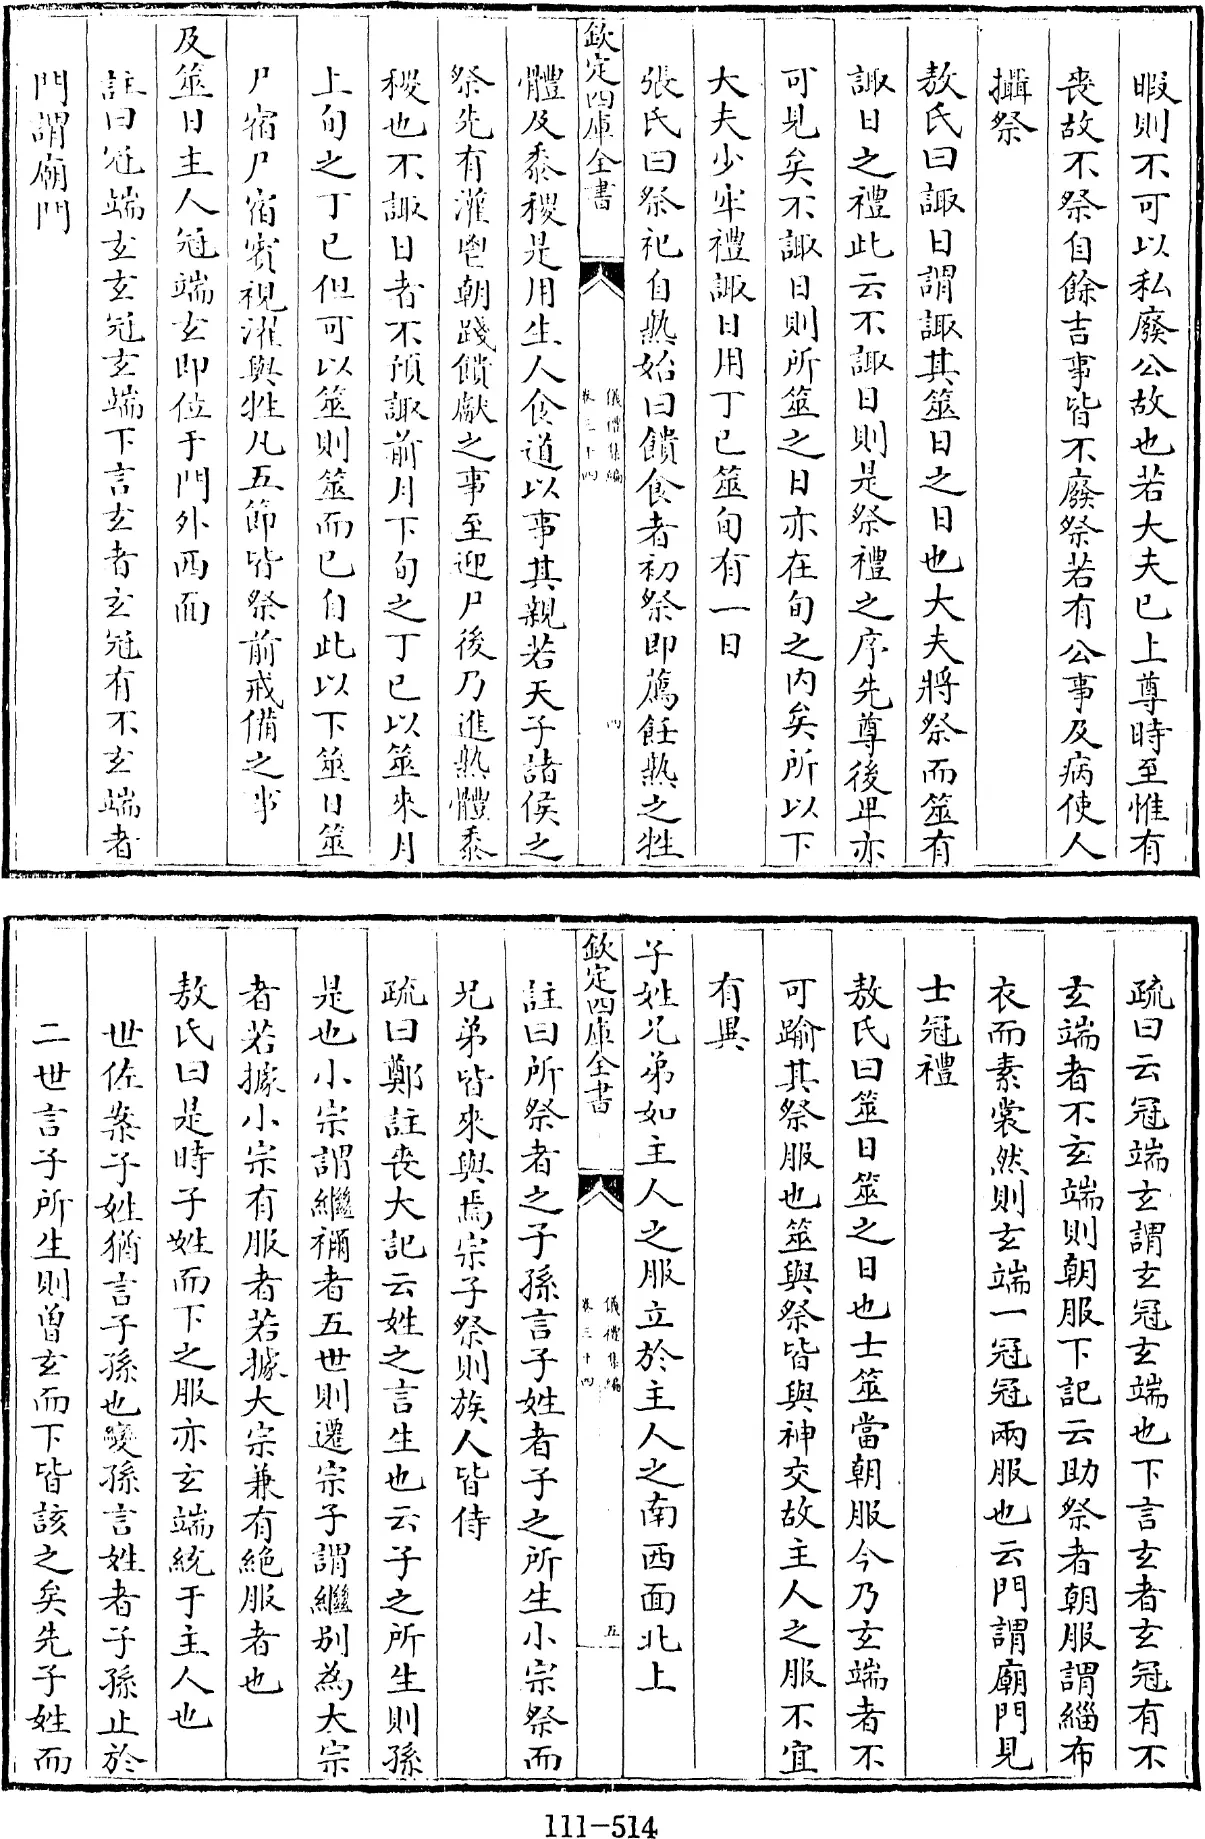 暇則不可以私廢公故也若大夫已上尊時至惟有
喪故不祭自餘吉事皆不廢祭若有公事及病使人
攝祭
敖氏曰諏日謂諏其筮日之日也大夫將祭而筮有
諏日之禮此云不諏日則是祭禮之序先尊後卑亦
可見矣不諏日則所筮之日亦在旬之内矣所以下
大夫少牢禮諏日用丁已筮旬有一日
張氏曰祭祀自熟始曰饋食者初祭即薦飪熟之牲
欽定四庫全書
儀禮集編
卷三十四
四
體及黍稷是用生人食道以事其親若天子諸侯之
祭先有灌鬯朝踐饋獻之事至迎尸後乃進熟體黍
稷也不諏日者不預諏前月下旬之丁已以筮來月
上旬之丁已但可以筮則筮而已自此以下筮日筮
尸宿尸宿賓視濯與牲凡五節皆祭前戒備之事
及筮日主人冠端玄即位于門外西面
註曰冠端玄玄冠玄端下言玄者玄冠有不玄端者
門謂廟門
疏曰云冠端玄謂玄冠玄端也下言玄者玄冠有不
玄端者不玄端則朝服下記云助祭者朝服謂緇布
衣而素裳然則玄端一冠冠兩服也云門謂廟門見
士冠禮
敖氏曰筮日筮之日也士筮當朝服今乃玄端者不
可踰其祭服也筮與祭皆與神交故主人之服不宜
有異
子姓兄弟如主人之服立於主人之南西面北上
欽定四庫全書
儀禮集編
卷三十四
五
註曰所祭者之子孫言子姓者子之所生小宗祭而
兄弟皆來與焉宗子祭則族人皆侍
疏曰鄭註喪大記云姓之言生也云子之所生則孫
是也小宗謂繼禰者五世則遷宗子謂繼别為大宗
者若據小宗有服者若據大宗兼有絶服者也
敖氏曰是時子姓而下之服亦玄端統于主人也
世佐案子姓猶言子孫也變孫言姓者子孫止於
二世言子所生則曾玄而下皆該之矣先子姓而
111-514